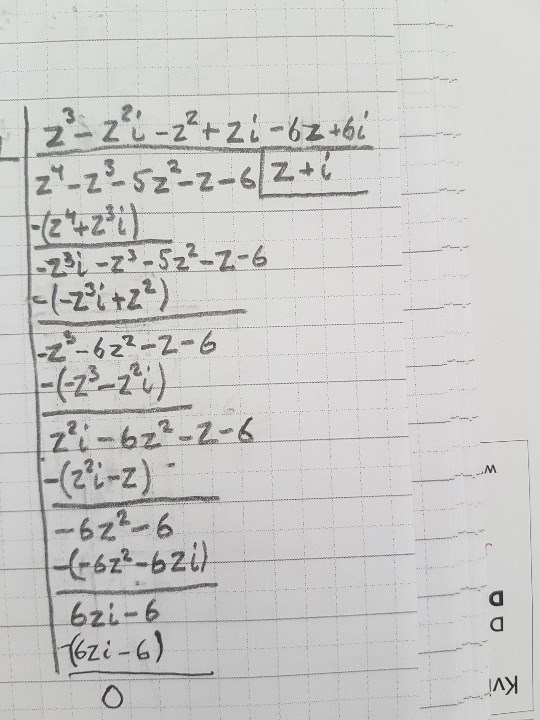 z³ - z²i - z² + zi - 6z + 6i
z⁴ - z³ - 5z² - z - 6 z + i
-(z⁴ + z³i)
-z³i - z³ - 5z² - z - 6
-(-z³i + z²)
-z³ - 6z² - z - 6
-(-z³ - z²i)
z²i - 6z² - z - 6
-(z²i - z)
-6z² - 6
-(-6z² - 6zi)
6zi - 6
-(6zi - 6)
0